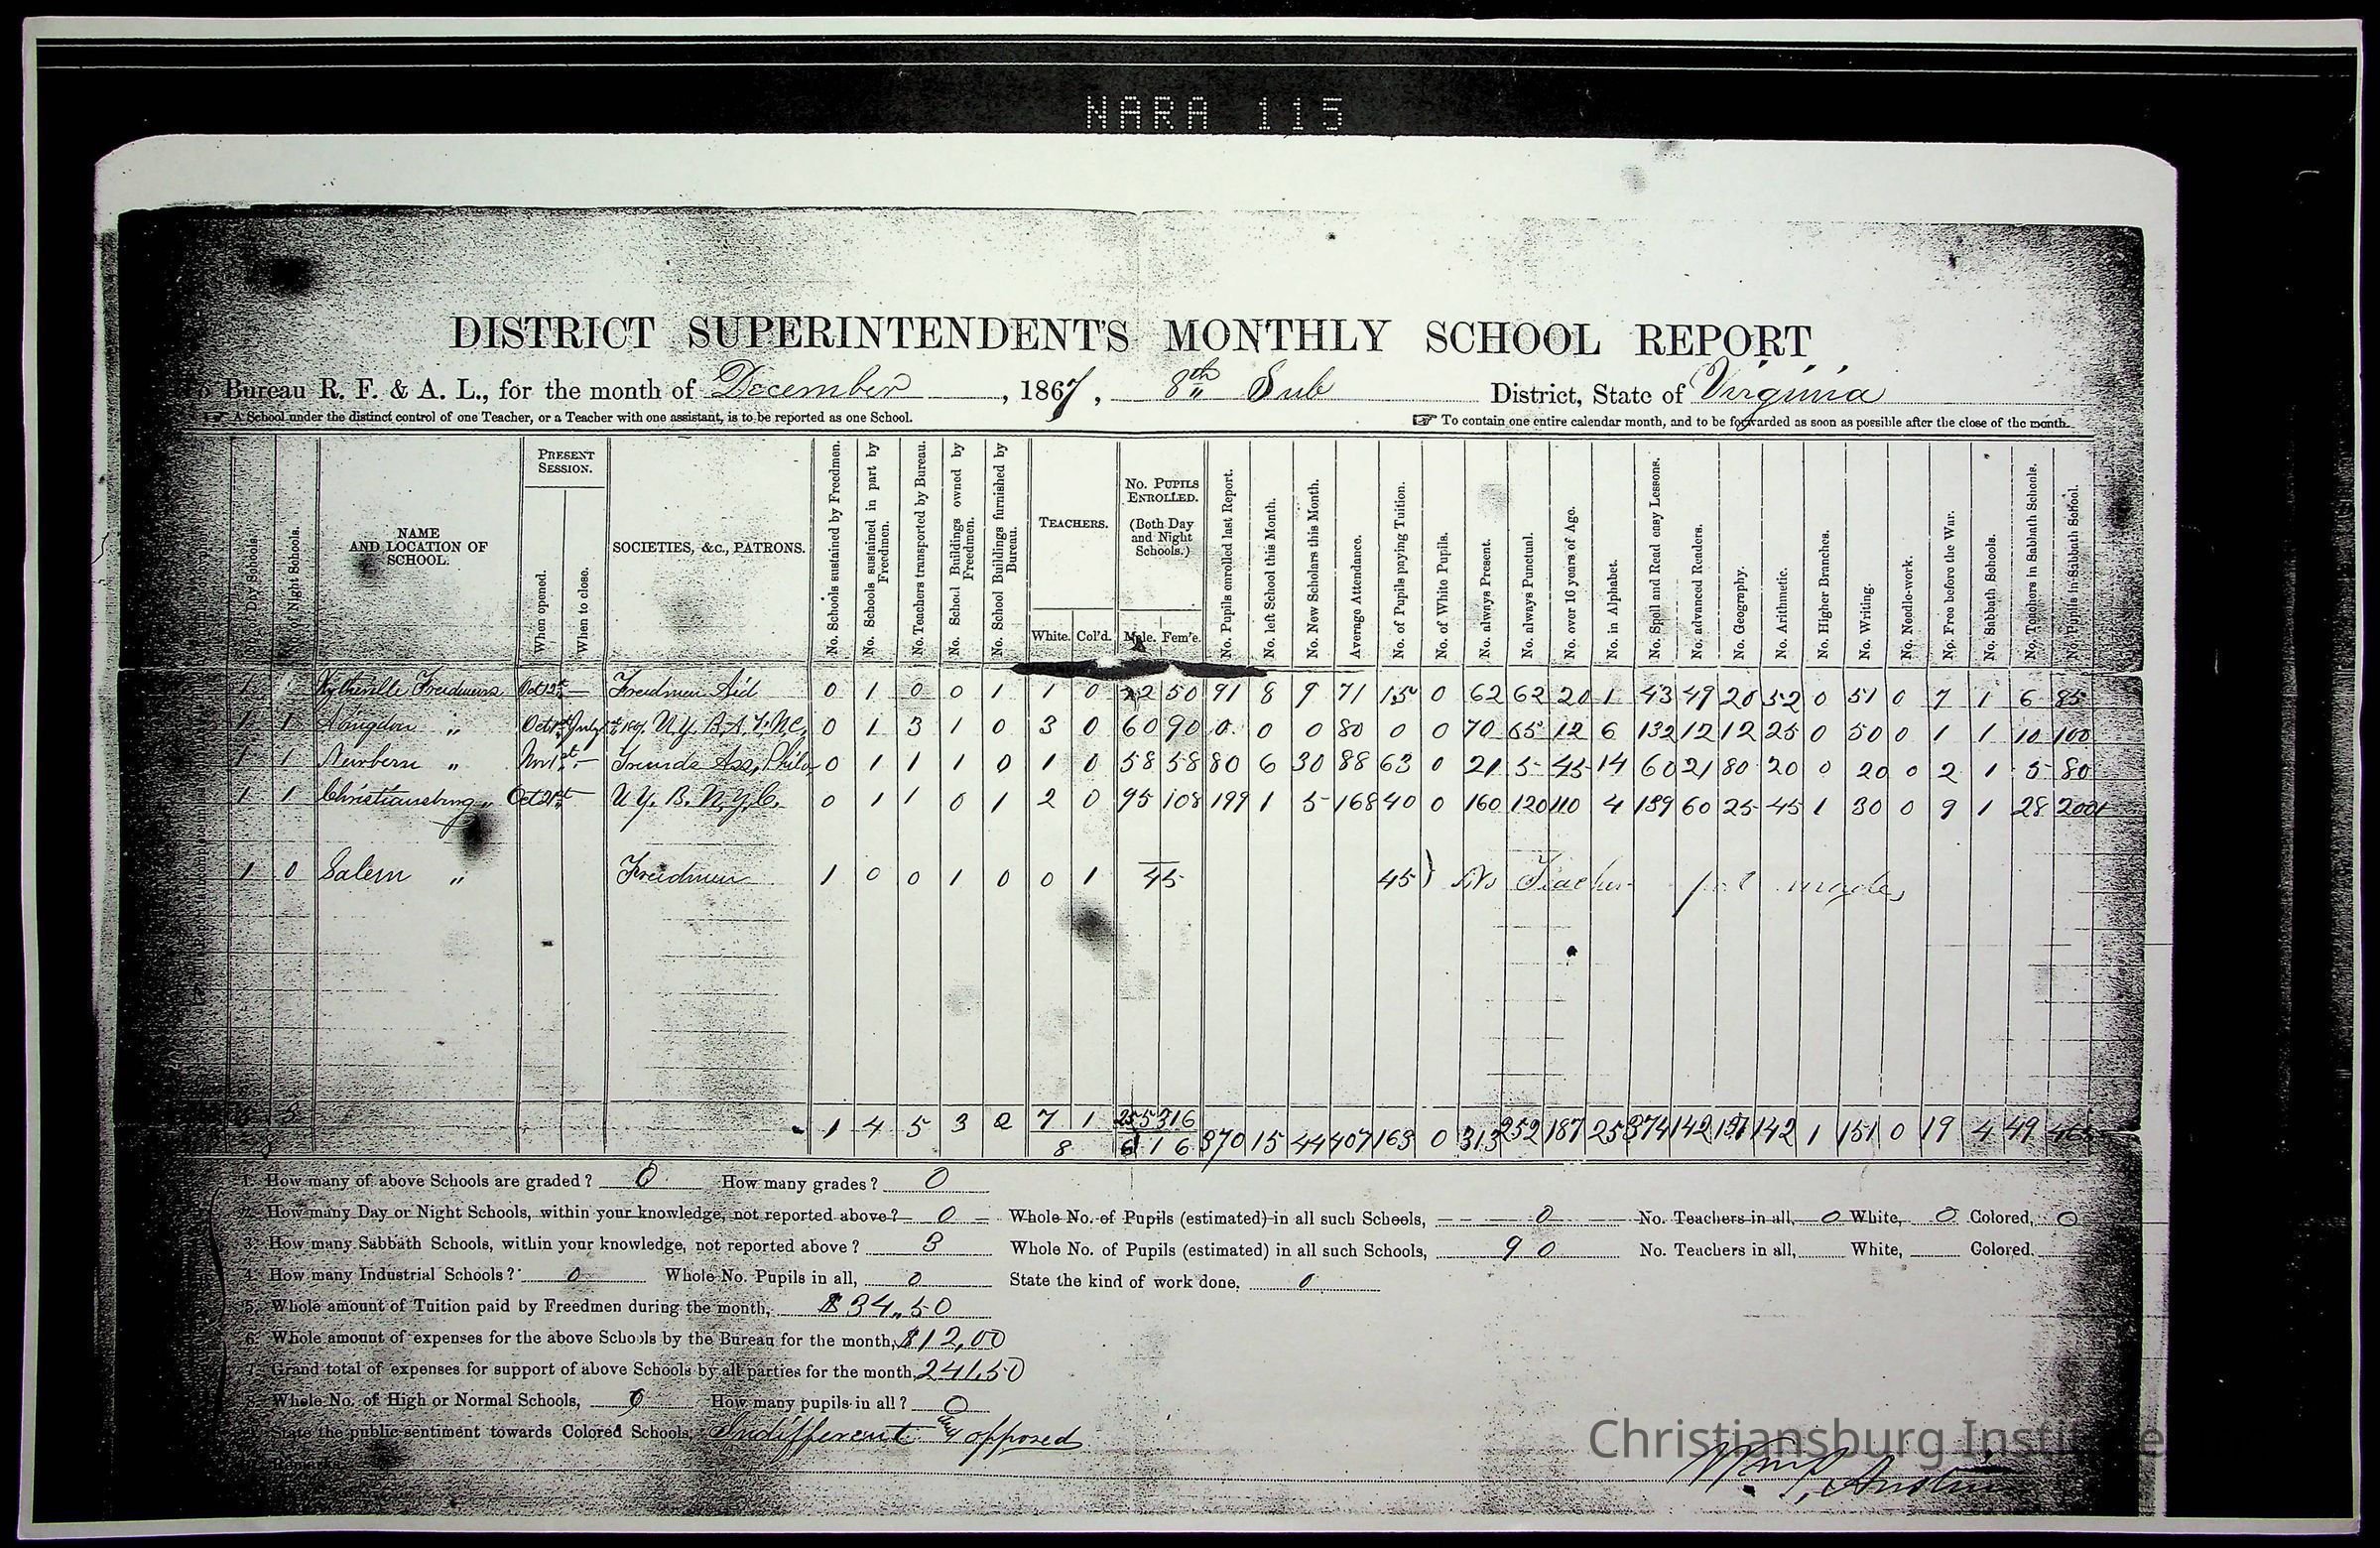 NARA 115
DISTRICT SUPERINTENDENT'S MONTHLY SCHOOL REPORT
To Bureau R. F. & A. L., for the month of December, 1867, 8th Sub District, State of Virginia
☞ A School under the distinct control of one Teacher, or a Teacher with one assistant, is to be reported as one School.
☞ To contain one entire calendar month, and to be forwarded as soon as possible after the close of the month.
Day Schools.
Night Schools.
NAME AND LOCATION OF SCHOOL.
PRESENT SESSION.
When opened.
When to close.
SOCIETIES, &c., PATRONS.
No. Schools sustained by Freedmen.
No. Schools sustained in part by Freedmen.
No. Teachers transported by Bureau.
No. School Buildings owned by Freedmen.
No. School Buildings furnished by Bureau.
TEACHERS.
White. Col'd.
No. PUPILS ENROLLED.
(Both Day and Night Schools.)
Male. Fem'e.
No. Pupils enrolled last Report.
No. left School this Month.
No. New Scholars this Month.
Average Attendance.
No. of Pupils paying Tuition.
No. of White Pupils.
No. always Present.
No. always Punctual.
No. over 16 years of Age.
No. in Alphabet.
No. Spell and Read easy Lessons.
No. advanced Readers.
No. Geography.
No. Arithmetic.
No. Higher Branches.
No. Writing.
No. Needle-work.
No. Free before the War.
No. Sabbath Schools.
No. Teachers in Sabbath Schools.
No. Pupils in Sabbath School.
1 Wytheville Freedmens Oct 12th — Freedmen Aid 0 1 0 0 1 1 0 50 91 8 9 71 15 0 62 62 20 1 43 49 20 52 0 51 0 7 1 6 85
1 1 Abingdon " Oct July 0 1 3 1 0 3 0 60 90 0 0 0 80 0 0 70 65 12 6 132 12 12 25 0 50 0 1 1 10 100
1 1 Newbern " Nov 1st — Friends Ass, Phila 0 1 1 1 0 1 0 58 58 80 6 30 88 63 0 21 5 45 14 60 21 80 20 0 20 0 2 1 5 80
1 1 Christiansburg " Oct 21st — N. Y. B. N. Y. C. 0 1 1 0 1 2 0 95 108 199 1 5 168 40 0 160 120 110 4 139 60 25 45 1 30 0 9 1 28 200
1 0 Salem " Freedmen 1 0 0 1 0 0 1 45 45 } No Teacher
1 4 5 3 2 7 1 255 316 370 15 44 407 163 0 313 252 187 25 374 142 142 1 151 0 19 4 49 465
8 8 616
1. How many of above Schools are graded? 0 How many grades? 0
2. How many Day or Night Schools, within your knowledge, not reported above? 0 Whole No. of Pupils (estimated) in all such Schools, 0 No. Teachers in all, 0 White, 0 Colored, 0
3. How many Sabbath Schools, within your knowledge, not reported above? 3 Whole No. of Pupils (estimated) in all such Schools, 90 No. Teachers in all, White, Colored.
4. How many Industrial Schools? 0 Whole No. Pupils in all, 0 State the kind of work done, 0
5. Whole amount of Tuition paid by Freedmen during the month, $34.50
6. Whole amount of expenses for the above Schools by the Bureau for the month, $12,00
7. Grand total of expenses for support of above Schools by all parties for the month, 241.50
8. Whole No. of High or Normal Schools, 0 How many pupils in all? 0
9. State the public sentiment towards Colored Schools, Indifferent and opposed
Remarks.
Christiansburg Institute
Austin